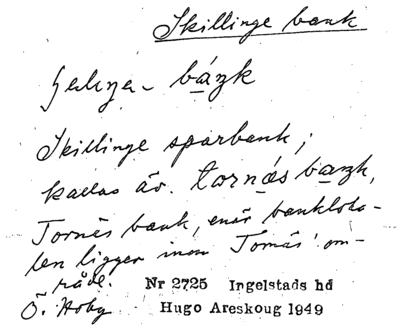 Skillinge bank
bázk
Skillinge sparbank;
kallas äv. tornás bazk,
Tornäs bank, enär bankloka-
len ligger inom Tornäs om-
råde. Nr 2725 Ingelstads hd
Ö. Hoby Hugo Areskoug 1949